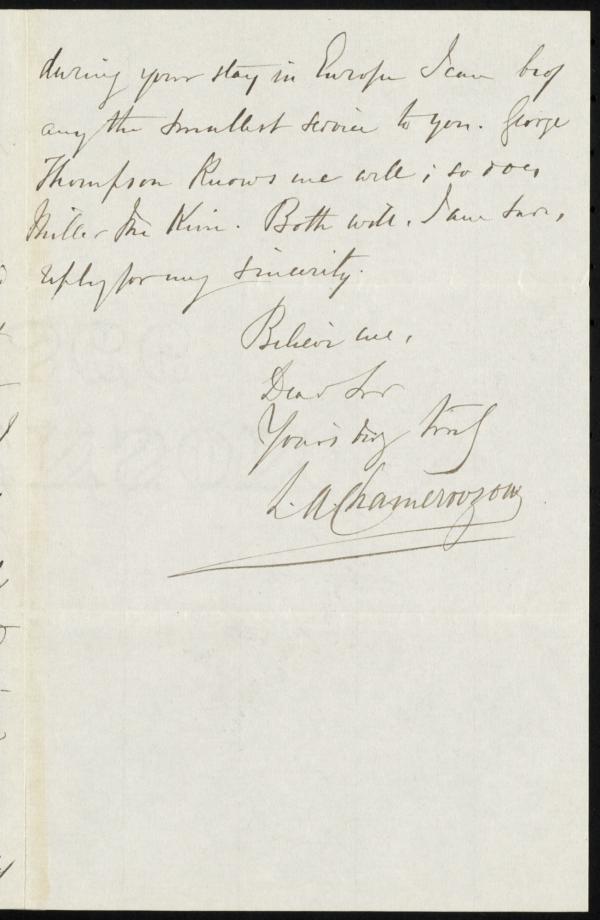 during your stay in Europe I can be of
any the smallest service to you. George
Thompson knows me well; so does
Miller Mc Kim. Both will, I am sure,
reply for my sincerity.
Believe me,
Dear Sir
Yours very truly
L. A. Chamerovzow